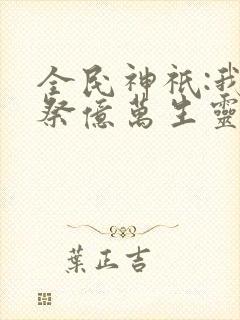 全民神祇:我
祭億萬生靈
葉正吉